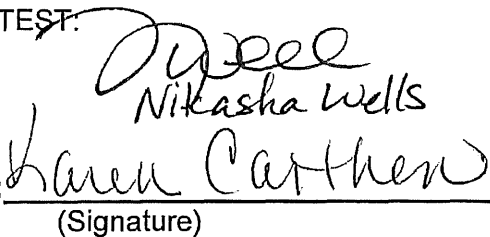 TEST:
Nikasha Wells
Karen Carthen
(Signature)